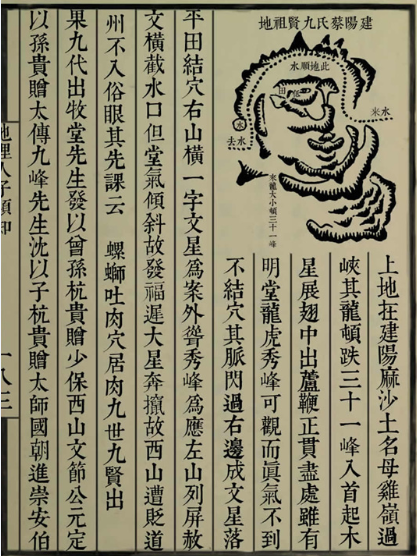 建陽蔡氏九賢祖地
此地順水
田低
水來
水
去水
來龍大小頓三十一峰
上地在建陽麻沙土名母雞嶺過
峽其龍頓跌三十一峰入首起木
星展翅中出蘆鞭正貫盡處雖有
明堂龍虎秀峰可觀而眞氣不到
不結穴其脈閃過右邊成文星落
平田結穴右山橫一字文星爲案外聳秀峰爲應左山列屏赦
文橫截水口但堂氣傾斜故發福遲大星奔竄故西山遭貶道
州不入俗眼其先課云 螺螄吐肉穴居肉九世九賢出
果九代出牧堂先生發以曾孫杭貴贈少保西山文節公元定
以孫貴贈太傅九峰先生沈以子杭貴贈太師國朝進崇安伯
地理人子須知
一八三